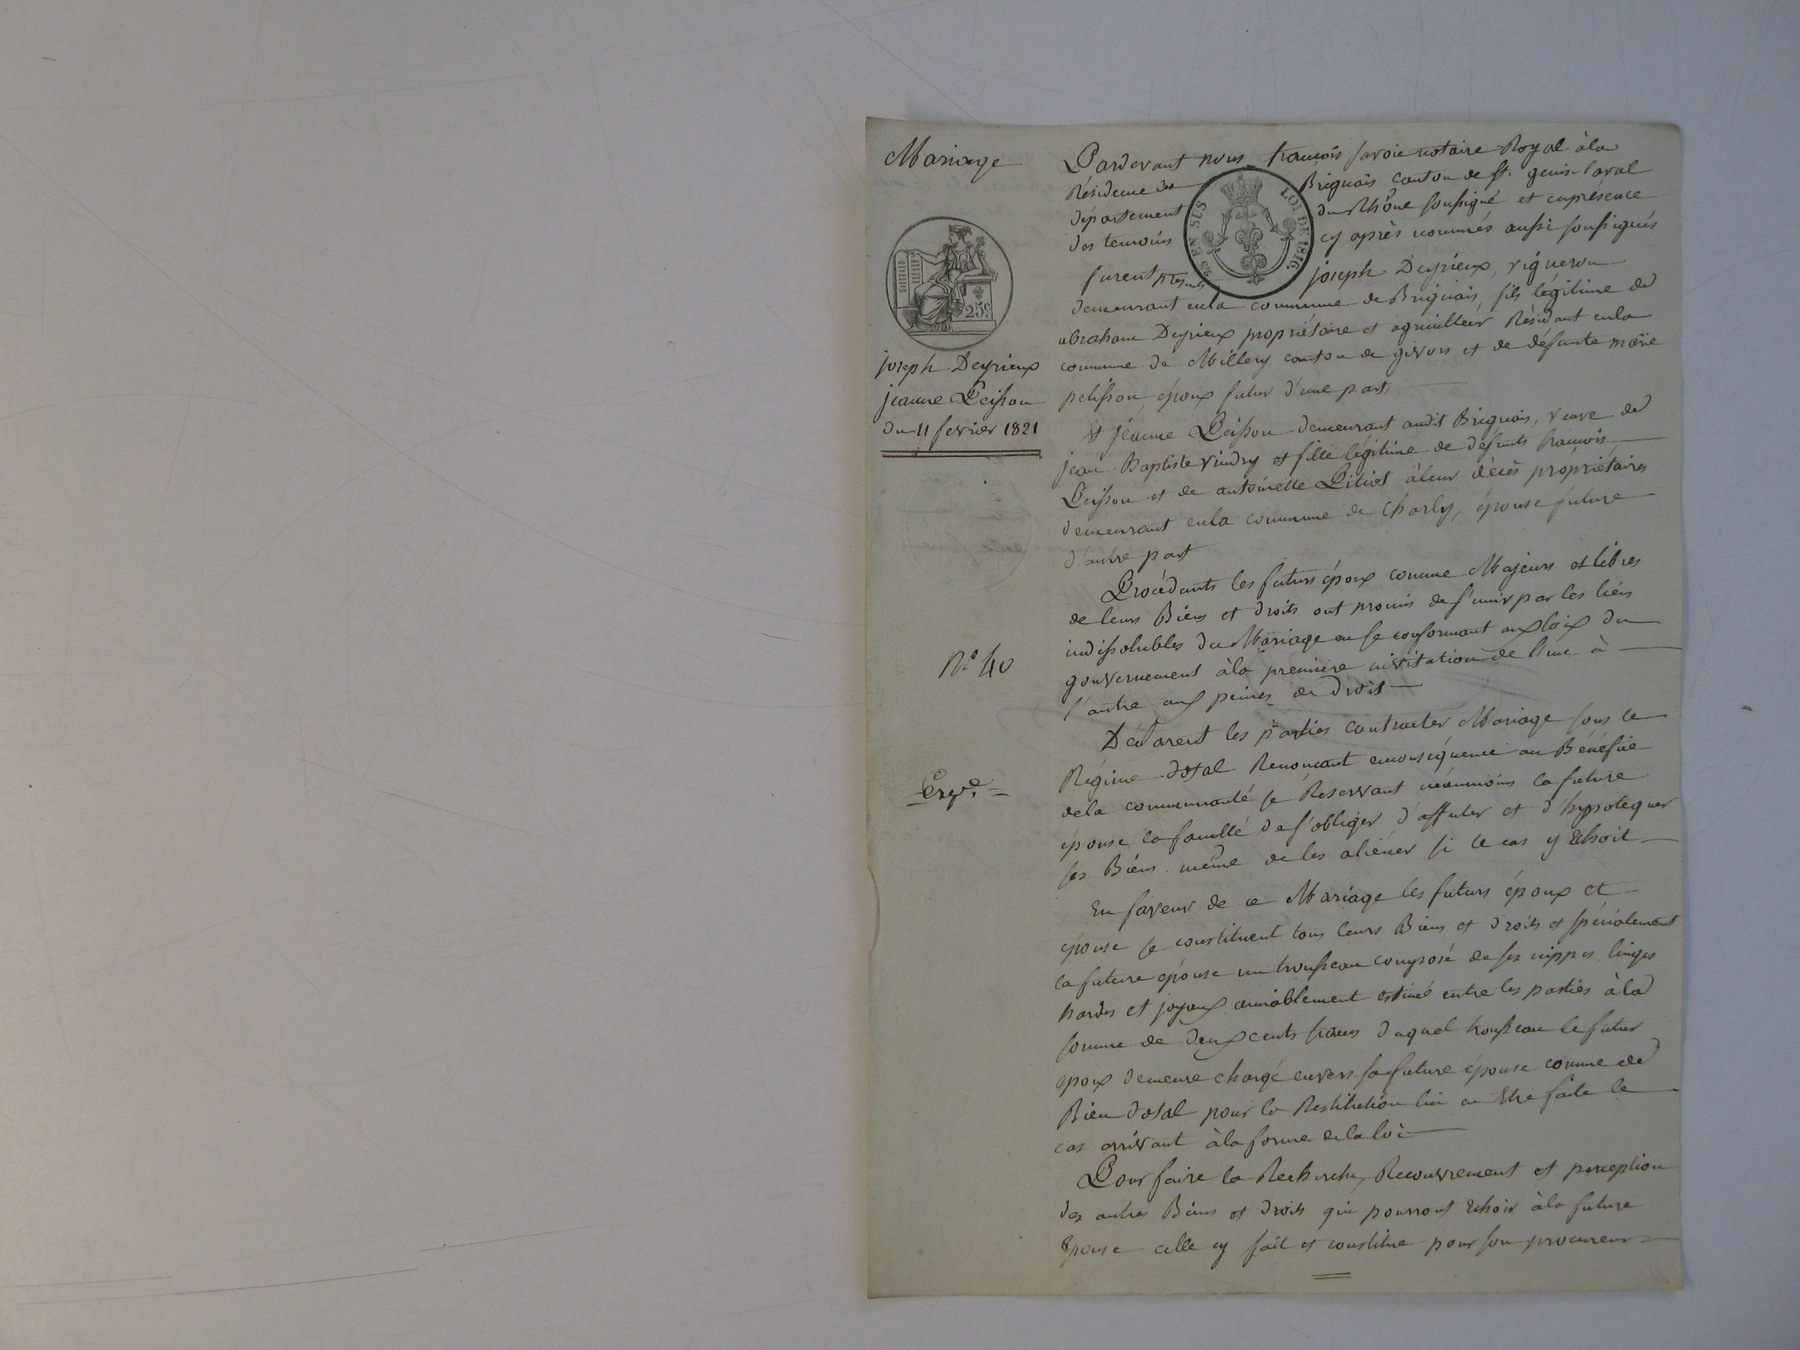 Mariage
25c.
joseph Deyrieux
jeanne Peisson
du 11 fevrier 1821
N.o 40
Exp.é
25 EN SUS LOI DE 1816.
Pardevant nous francois savoie notaire Royal àla
Résidence de Brignais canton de st. genis-laval
département du Rhône soussigné et enprésence
des temoins cy après nommés aussi soussignés
furent présents joseph Deyrieux, vigneron
demeurant enla commune de Brignais, fils légitime de
abraham Deyrieux propriétaire et agriculteur Résidant enla
commune de Millery canton de givors et de défunte marie
pelisson époux futur d'une part
Et jeanne Peisson demeurant audit Brignais, veuve de
jean Baptiste vindry et fille légitime de défunts francois
Peisson et de antoinette Pitiot àleur décès propriétaires
demeurant enla commune de Charly, épouse future
d'autre part
Procédants les futurs époux comme Majeurs et libres
de leurs Biens et droits ont promis de s'unir par les liens
indissolubles du Mariage en se conformant aux loix du
gouvernement àla premiere invitation de l'une à
l'autre aux peines de droit
Déclarent les parties contracter Mariage sous le
Régime dotal Renoncant enconséquence au Bénéfice
dela communauté se Réservant néanmoins la future
épouse la faculté de s'obliger d'affecter et d'hypotequer
ses Biens même de les aliéner si le cas y Echoit
En faveur de ce Mariage les futurs époux et
épouse se constituent tous leurs Biens et droits et spécialement
la future épouse un trousseau composé de ses nippes linges
hardes et joyaux amiablement estimé entre les parties àla
somme de deux cents francs duquel trousseau le futur
epoux demeure chargé envers sa future épouse comme de
Bien dotal pour la Restitution lui en Etre faite le
cas arrivant àla forme dela loi
Pour faire la Recherche, Recouvrement et perception
des autres Biens et droits qui pourront Echoir àla future
Epouse celle cy fait et constitue pour son procureur